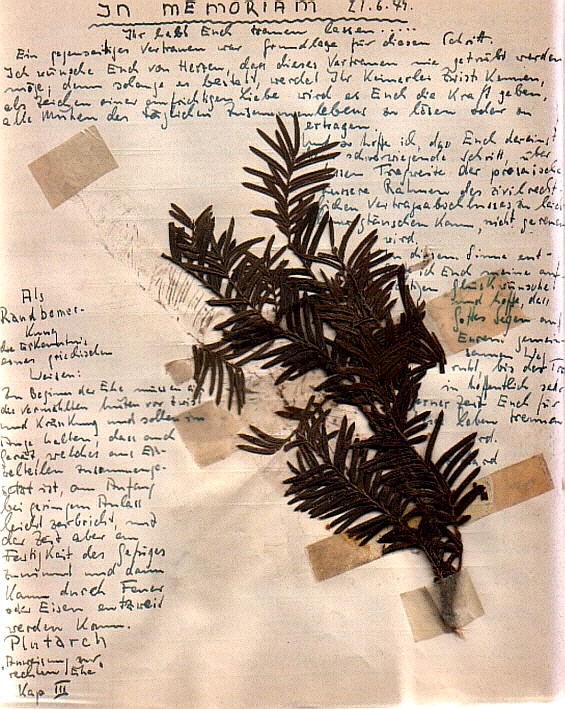 IN MEMORIAM 21.6.49.
Ihr habt Euch trauen lassen.....
Ein gegenseitiges Vertrauen war Grundlage für diesen Schritt.
Ich wünsche Euch von Herzen, dass dieses Vertrauen nie getrübt werden
möge; denn solange es besteht, werdet Ihr keinerlei Zwist kennen,
als Zeichen einer aufrichtigen Liebe wird es Euch die Kraft geben,
alle Mühen des täglichen Zusammenlebens zu lösen oder zu
ertragen.
so hoffe ich, dass Euch dereinst
schwerwiegende Schritt, über
Tragweite der prosaische
Rahmen des zivilrecht-
lichen Vertragsabschlusses, so leicht
hinwegtäuschen kann, nicht gereuen
wird.
diesem Sinne ent-
ich Euch meine auf-
Glückwünsche
und hoffe, dass
Gottes Segen auf
Eurem gemein-
samen Weg
ruht, bis der Tod
in hoffentlich sehr
ferner Zeit Euch für
leben trennen
Als
Randbemer-
kung
die Erkenntnis
eines griechischen
Weisen:
Zu Beginn der Ehe müssen
die Vermählten hüten vor Zwist
und Kränkung und sollen im
Auge halten, dass auch
Gerät, welches aus Ein-
zelteilen zusammenge-
setzt ist, am Anfang
bei geringem Anlass
leicht zerbricht, mit
der Zeit aber an
Festigkeit des Gefüges
zunimmt und dann
kaum durch Feuer
oder Eisen entzweit
werden kann.
Plutarch
Kap III